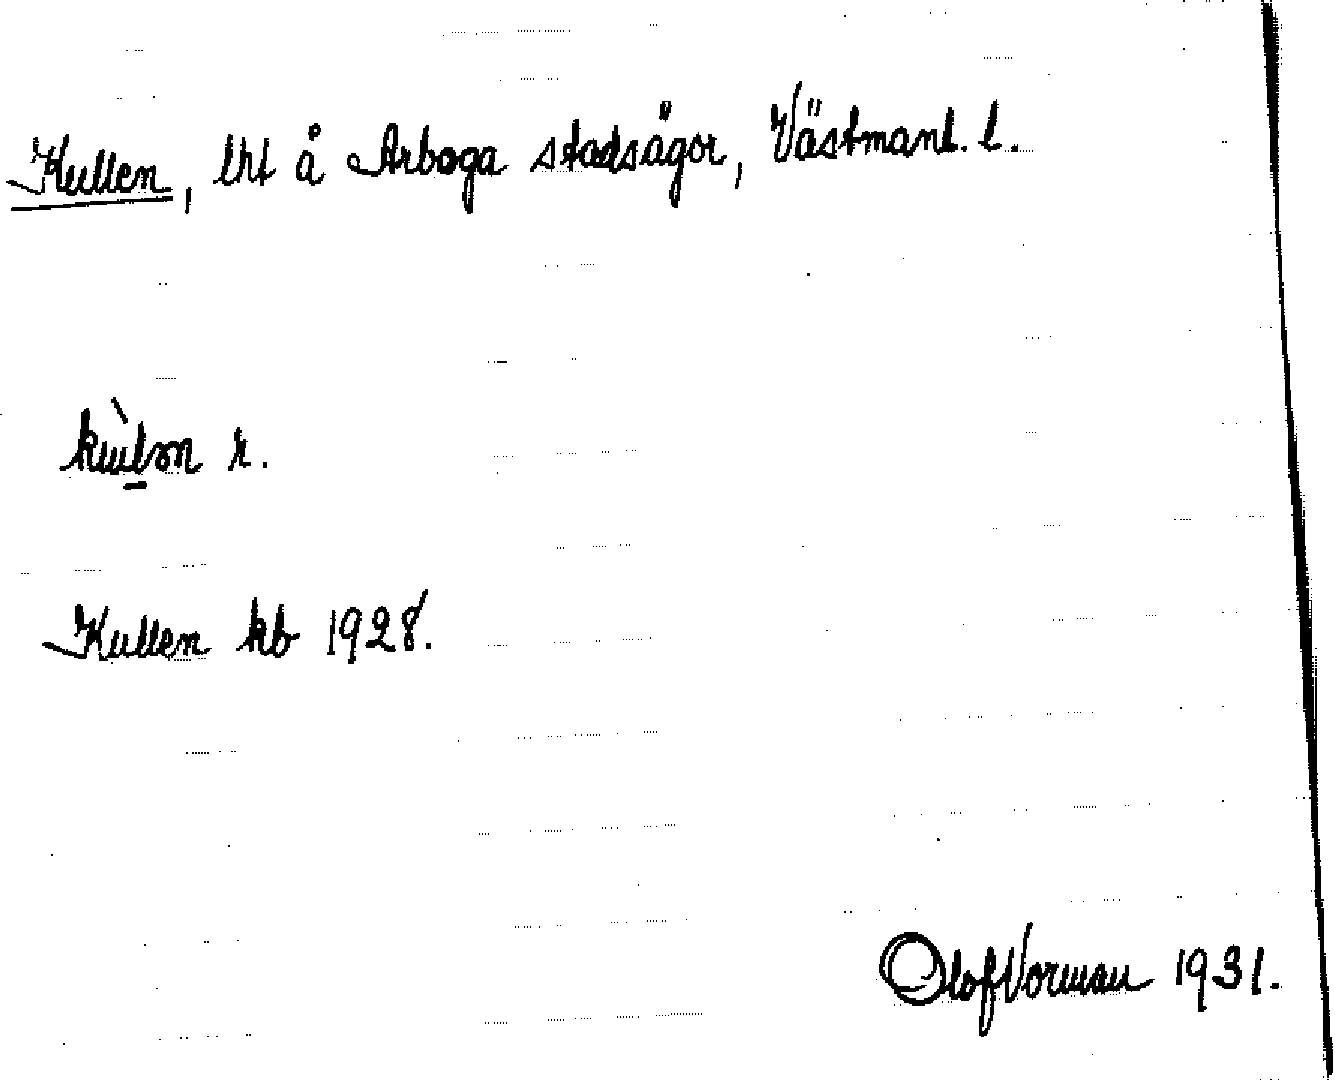 Kullen, lht å Arboga stadsägor, Västmanl. l.
r.
Kullen kb 1928.
Olof Vorman 1931.